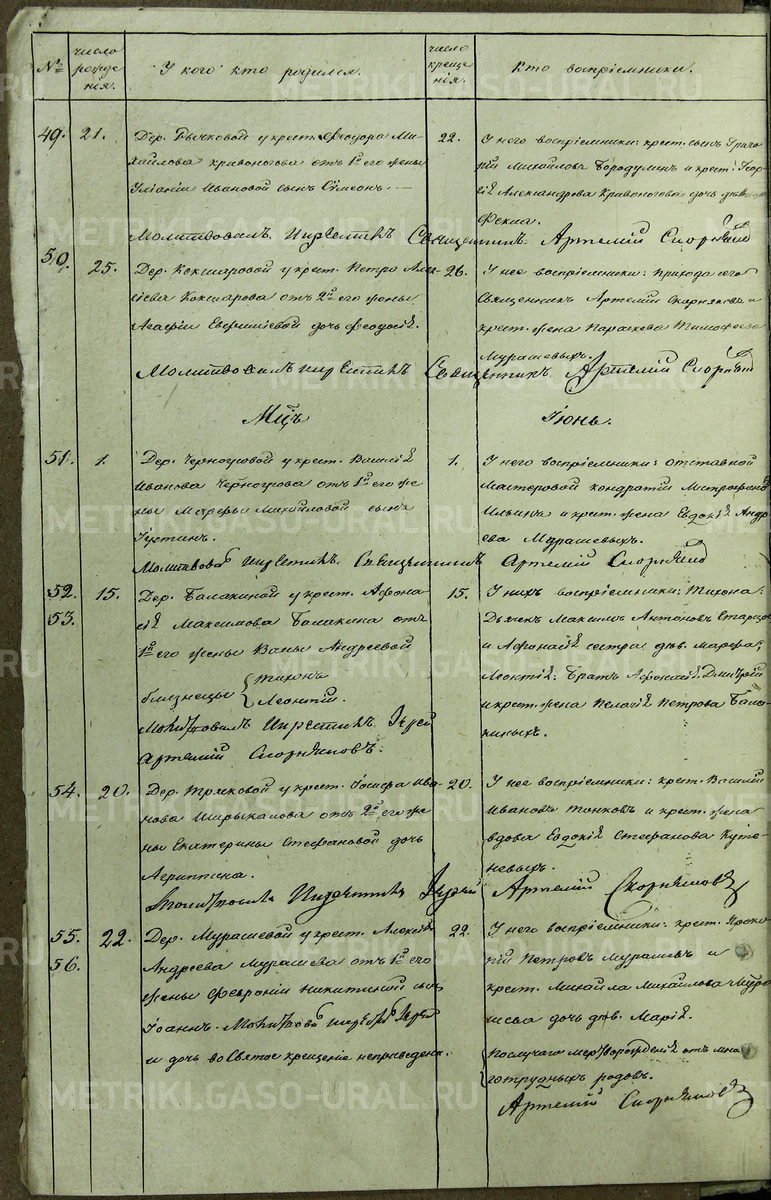 №
число рождения.
У кого кто родился.
число крещения.
Кто воспріемники.
49. 21.
Дер. Рычковой у крест. Феодора Ми-
хайлова Кривоногова отъ 1й его жены
Уліаніи Ивановой сынъ Сѵмеонъ.
22.
У него воспріемники: крест. сынъ Григо
рій Михайловъ Бородулинъ и крест. Геор
гія Александрова Кривоногова дочь
Фекла.
Молитвовалъ и крестилъ Священникъ Артемій Скорняковъ
50. 25.
Дер. Кокшаровой у крест. Петра Алек-
сіева Кокшарова отъ 2й его жены
Агафіи Евфиміевой дочь Феодосія.
26.
У нее воспріемники: прихода сего
Священникъ Артемій Скорняковъ и
крест. жена Параскева Тимофеева
Мурашевыхъ.
Молитвовалъ и крестилъ Священникъ Артемій Скорняковъ
Мцъ Іюнь.
51. 1.
Дер. Черноусовой у крест. Василія
Иванова Черноусова отъ 1й его же
ны Марѳы Михайловой сынъ
Іустинъ.
1.
У него воспріемники: отставной
Мастеровой Кондратій Митрофановъ
Ильинъ и крест. жена Евдокія Андре
ева Мурашевыхъ.
Молитвовалъ и крестилъ Священникъ Артемій Скорняковъ
52. 53. 15.
Дер. Балакиной у крест. Афона
сія Максимова Балакина отъ
1й его жены Андреевой
близнецы Тихонъ
Леонтій.
Молитвовалъ и крестилъ Іерей
Артемій Скорняковъ.
15.
У нихъ воспріемники: Тихона:
Дьячекъ Максимъ Антоновъ Старцовъ
и Афонасія сестра дѣв. Марѳа;
Леонтія: Братъ Афонасія Дмитрій
и крест. жена Пелагія Петрова Бала
киныхъ.
54. 20.
Дер. Трыковой у крест. Іосифа Ива-
нова Ширыкалова отъ 2й его же
ны Екатерины Стефановой дочь
Агриппина.
20.
У нее воспріемники: крест. Василій
Ивановъ Тонковъ и крест. жена
вдова Евдокія Стефанова Кутe
невыхъ.
Молитвовалъ и крестилъ Іерей Артемій Скорняковъ
55. 56. 22.
Дер. Мурашевой у крест. Алексія
Андреева Мурашева отъ 1й его
жены Февроніи Никитиной сынъ
Іоаннъ. Молитвовалъ и крестилъ Іерей
и дочь во Святое крещеніе неприведена.
22.
У него воспріемники: крест. Проко
пій Петровъ Мурашевъ и
крест. Михаила Михайлова Мура
шева дочь дѣв. Марія.
по случаю мертворожденія отъ мно
готрудныхъ родовъ.
Артемій Скорняковъ
METRIKI.GASO-URAL.RU